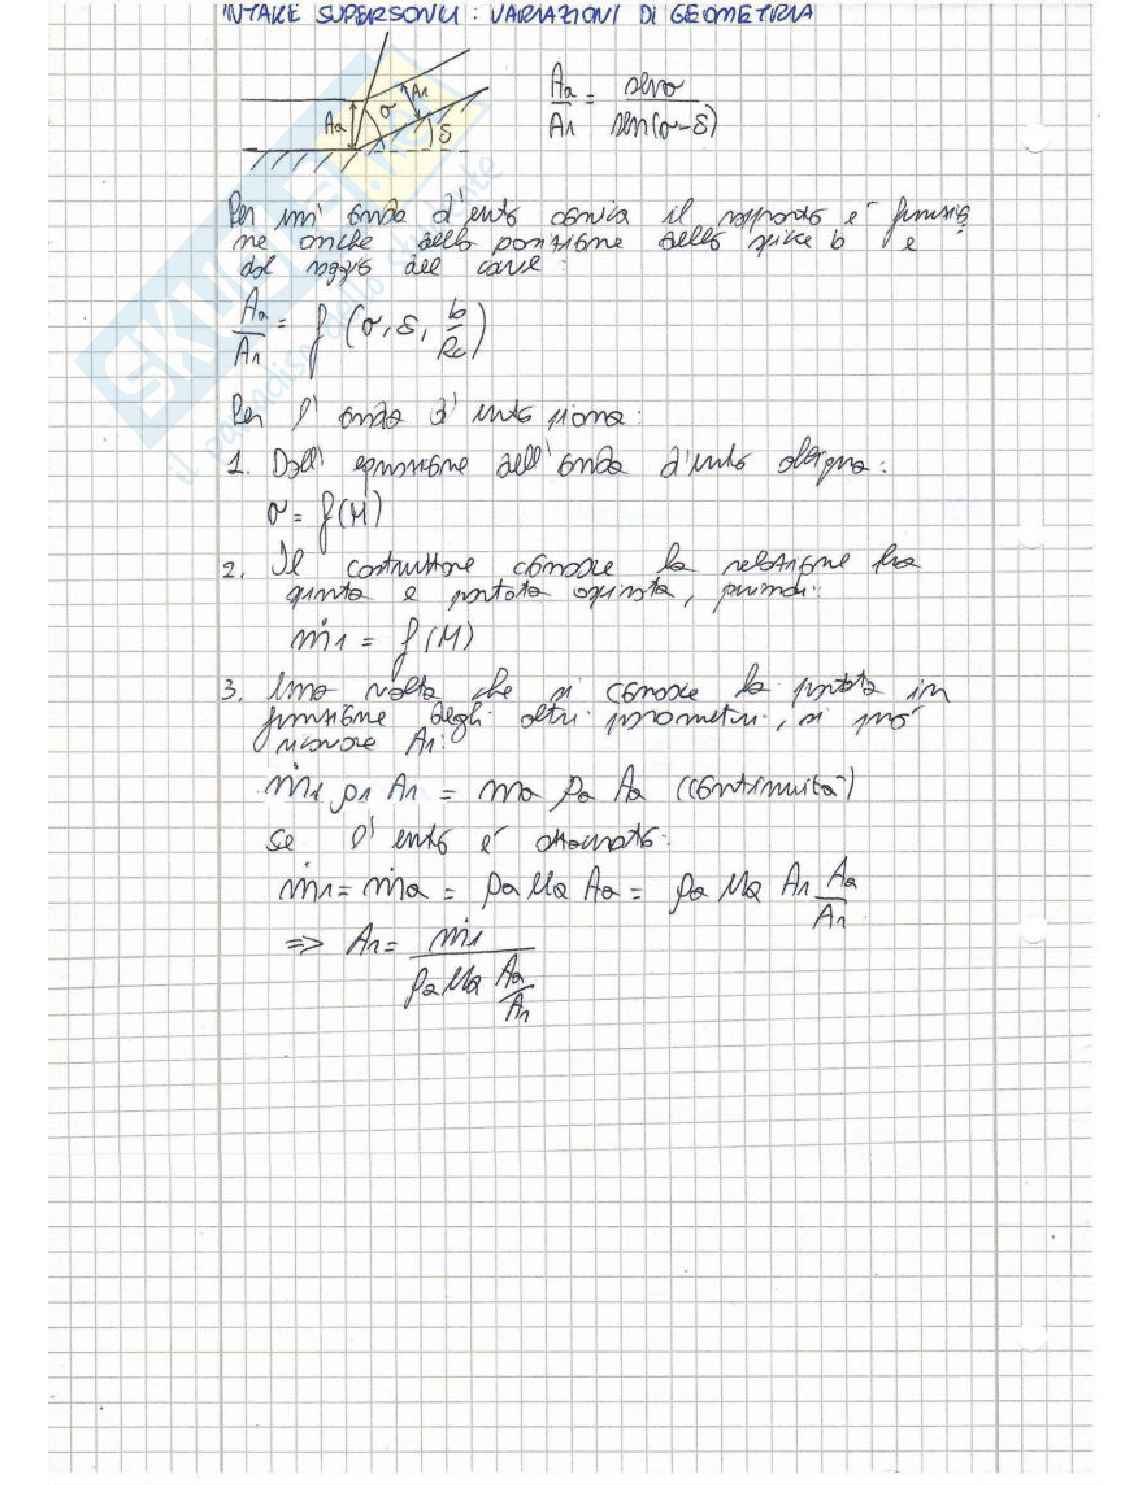 INTAKE SUPERSONICI : VARIAZIONI DI GEOMETRIA
Aa A1 σ δ
Aa/A1 = senσ/sen(σ-δ)
Per un' onda d'urto conica il rapporto é funzio
ne anche della posizione dello spike b e
dal raggio del cowl:
Aa/A1 = f (σ, δ, b/Rc)
Per l' onda d' urto piana:
1. Dall' equazione dell'onda d'urto obliqua:
σ = f(M)
2. Il costruttore conosce la relazione tra
quota e portata aspirata, quindi:
ṁ1 = f(M)
3. Una volta che si conosce la portata in
funzione degli altri parametri, si può
ricavare A1:
ṁ1 ρ1 A1 = ma ρa Aa (continuità)
se l' urto é attaccato:
ṁ1 = ṁa = ρa Ua Aa = ρa Ua A1 Aa/A1
=> A1 = ṁ1/(ρa Ua Aa/A1)
SKUOLA.NET
il paradiso dello studente